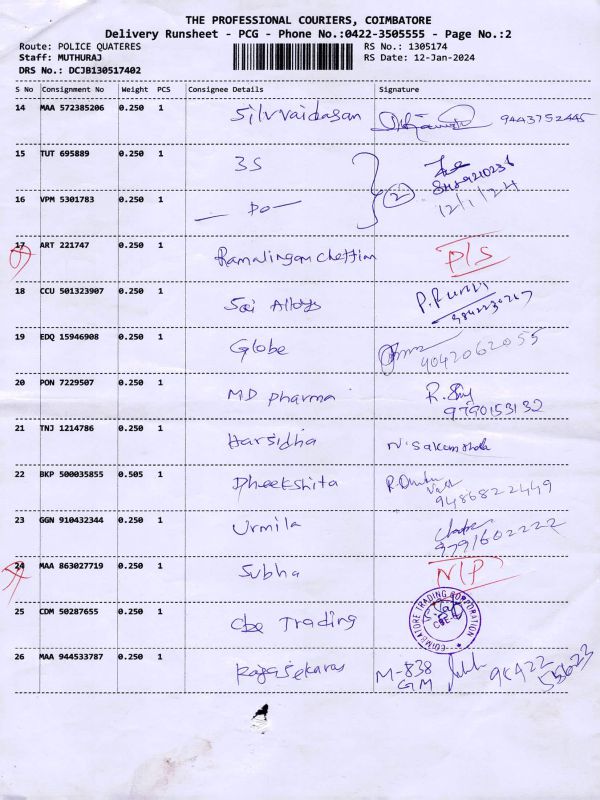 THE PROFESSIONAL COURIERS, COIMBATORE
Delivery Runsheet - PCG - Phone No.:0422-3505555 - Page No.:2
Route: POLICE QUATERES RS No.: 1305174
Staff: MUTHURAJ RS Date: 12-Jan-2024
DRS No.: DCJB130517402
S No Consignment No Weight PCS Consignee Details Signature
14 MAA 572385206 0.250 1 Silvvaidasan 9443752445
15 TUT 695889 0.250 1 3S
16 VPM 5301783 0.250 1 — Do — 2 12/1/24
17 ART 221747 0.250 1 Ramalingam Chettiar P/S
18 CCU 501323907 0.250 1 Sai Alloys
19 EDQ 15946908 0.250 1 Globe 9042062055
20 PON 7229507 0.250 1 MD pharma 9790153132
21 TNJ 1214786 0.250 1 Harsidha
22 BKP 500035855 0.505 1 Dheekshita 9486822449
23 GGN 910432344 0.250 1 Urmila 9791602222
24 MAA 863027719 0.250 1 Subha N/P
25 CDM 50287655 0.250 1 Cbe Trading COIMBATORE TRADING CORPORATION
26 MAA 944533787 0.250 1 Rajasekaran M-838
GM 98422 55623